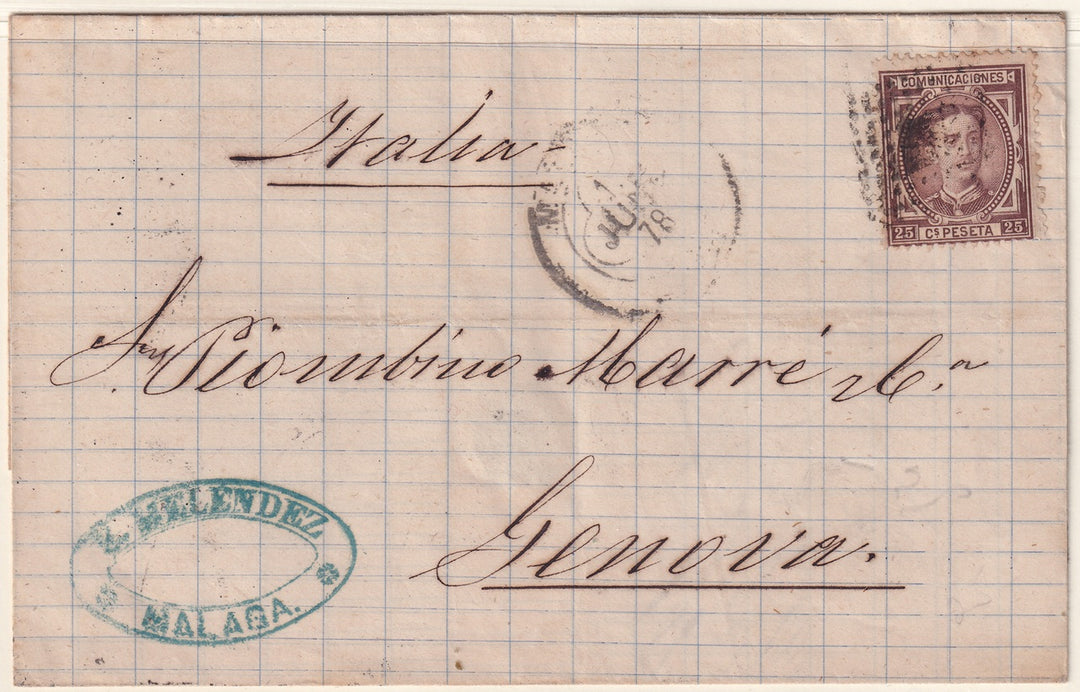 COMUNICACIONES
25 Cs PESETA 25
Italia
JUN
78
Sres Piombino Marré y Ca
Genova.
MELENDEZ
MALAGA.